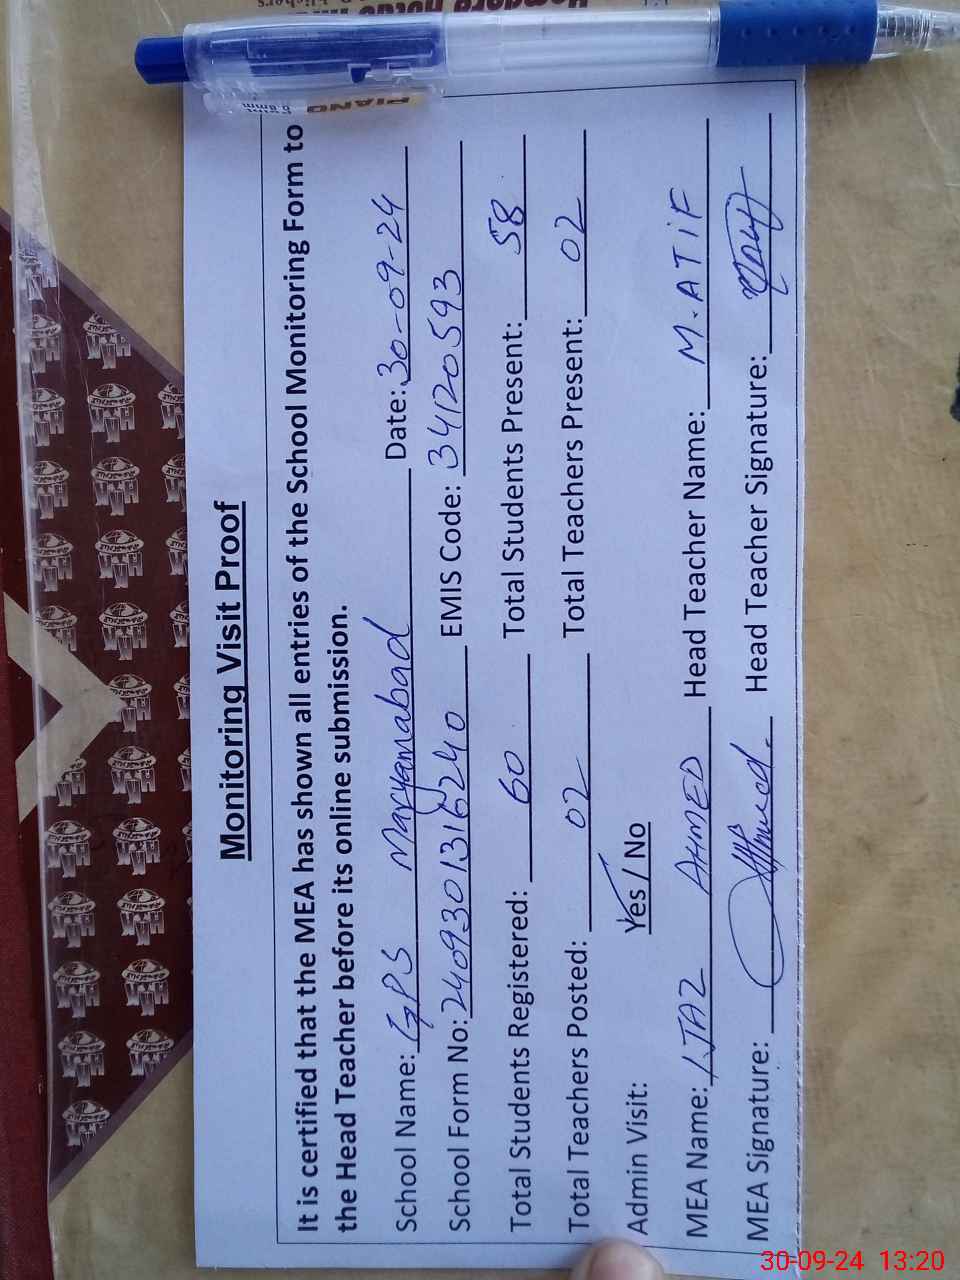 Monitoring Visit Proof
It is certified that the MEA has shown all entries of the School Monitoring Form to
the Head Teacher before its online submission.
School Name: GPS Maryamabad Date: 30-09-24
School Form No: 2409301316240 EMIS Code: 34120593
Total Students Registered: 60 Total Students Present: 58
Total Teachers Posted: 02 Total Teachers Present: 02
Admin Visit: Yes / No
MEA Name: IJAZ AHMED Head Teacher Name: M. ATIF
MEA Signature: Head Teacher Signature:
PIANO
0.8mm
30-09-24 13:20